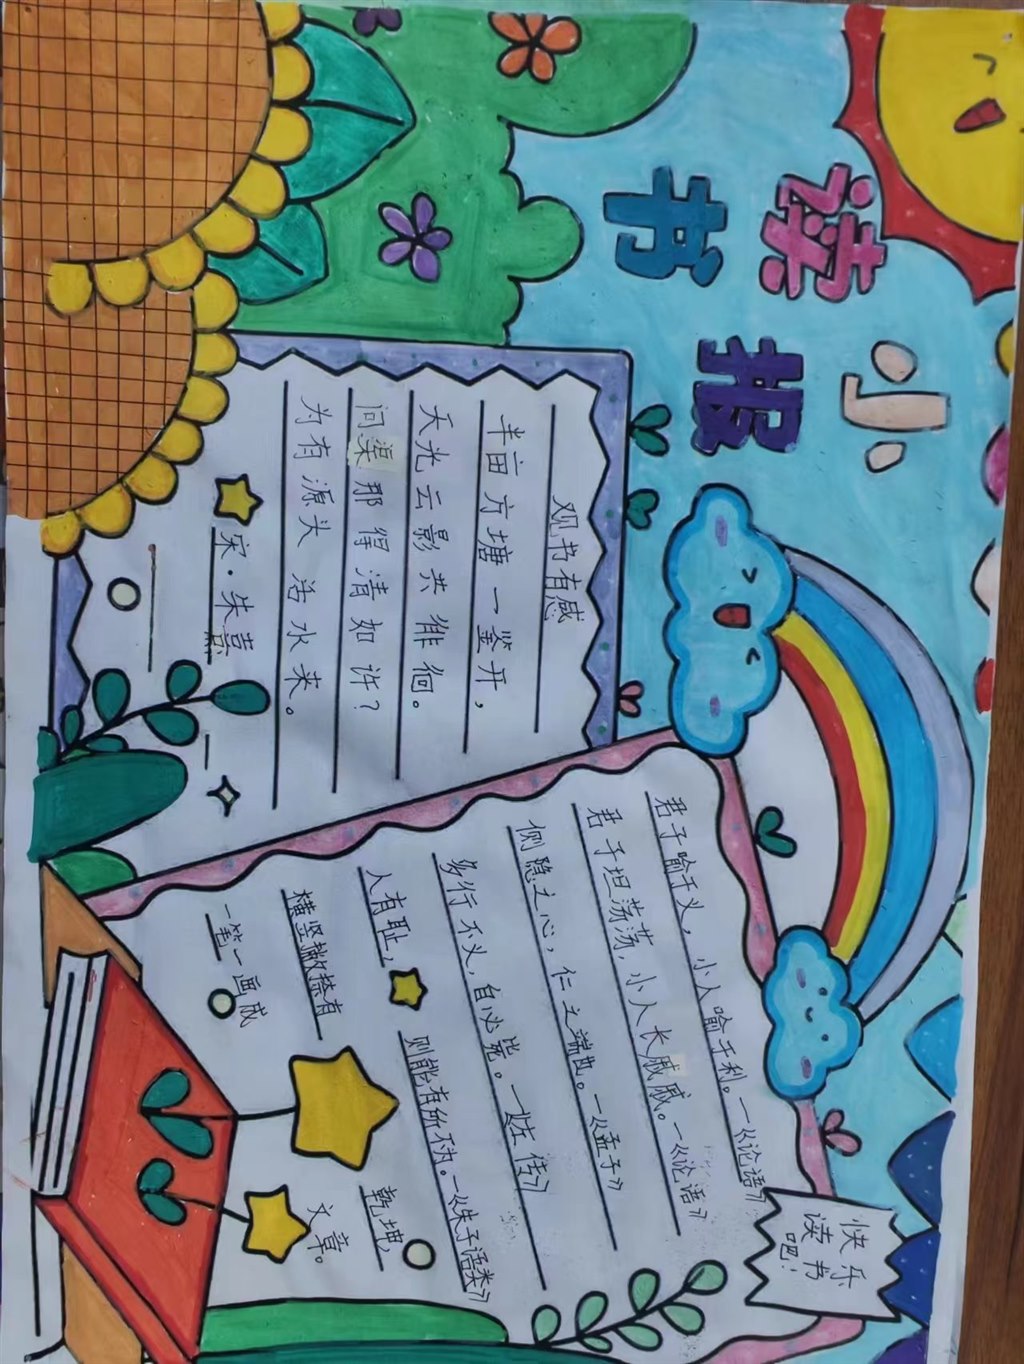 读书小报
观书有感
半亩方塘一鉴开，
天光云影共徘徊。
问渠那得清如许？
为有源头活水来。
宋·朱熹
君子喻于义，小人喻于利。—《论语》
君子坦荡荡，小人长戚戚。—《论语》
侧隐之心，仁之端也。—《孟子》
多行不义，自必毙。—《左传》
人有耻，则能有所不为。—《朱子语类》
横竖撇捺有乾坤，
一笔一画成文章。
快乐
读书
吧！